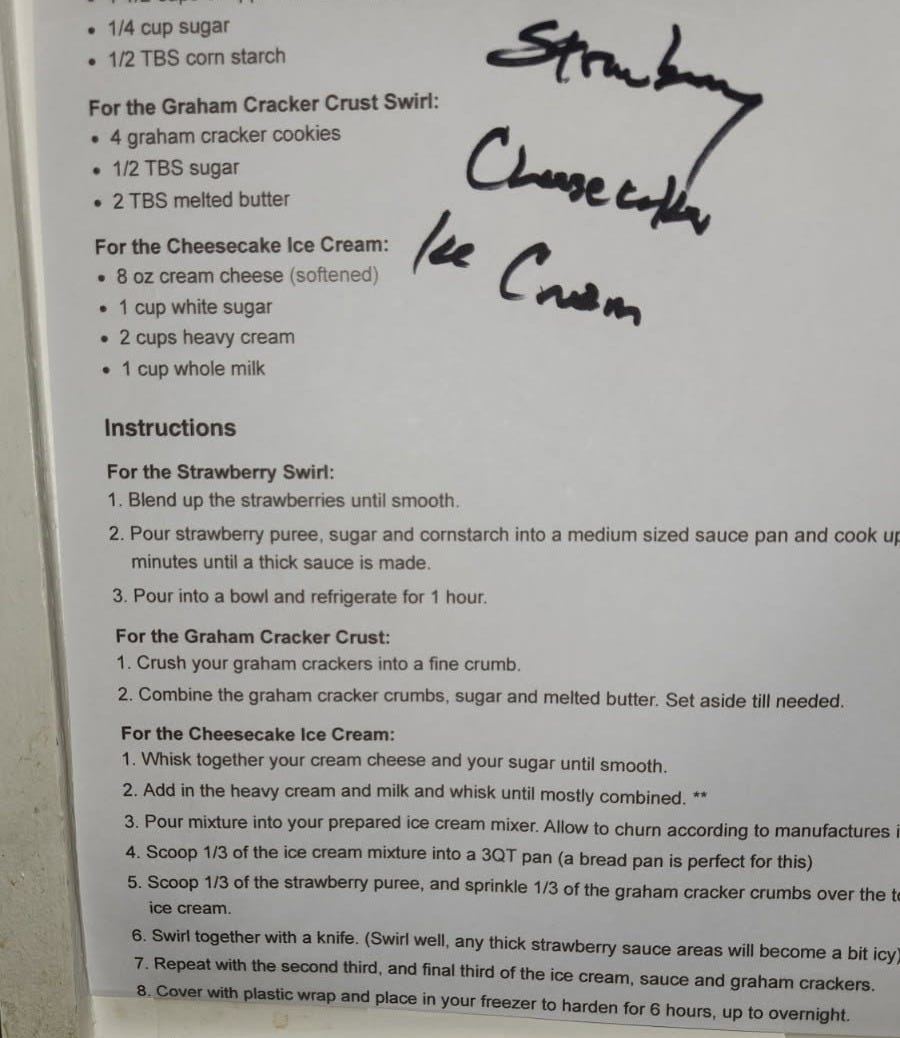 1/4 cup sugar
1/2 TBS corn starch
Strawberry
For the Graham Cracker Crust Swirl:
4 graham cracker cookies
1/2 TBS sugar
2 TBS melted butter
Cheesecake
For the Cheesecake Ice Cream:
Ice Cream
8 oz cream cheese (softened)
1 cup white sugar
2 cups heavy cream
1 cup whole milk
Instructions
For the Strawberry Swirl:
1. Blend up the strawberries until smooth.
2. Pour strawberry puree, sugar and cornstarch into a medium sized sauce pan and cook up
minutes until a thick sauce is made.
3. Pour into a bowl and refrigerate for 1 hour.
For the Graham Cracker Crust:
1. Crush your graham crackers into a fine crumb.
2. Combine the graham cracker crumbs, sugar and melted butter. Set aside till needed.
For the Cheesecake Ice Cream:
1. Whisk together your cream cheese and your sugar until smooth.
2. Add in the heavy cream and milk and whisk until mostly combined. **
3. Pour mixture into your prepared ice cream mixer. Allow to churn according to manufactures
4. Scoop 1/3 of the ice cream mixture into a 3QT pan (a bread pan is perfect for this)
5. Scoop 1/3 of the strawberry puree, and sprinkle 1/3 of the graham cracker crumbs over the
ice cream.
6. Swirl together with a knife. (Swirl well, any thick strawberry sauce areas will become a bit icy)
7. Repeat with the second third, and final third of the ice cream, sauce and graham crackers.
8. Cover with plastic wrap and place in your freezer to harden for 6 hours, up to overnight.